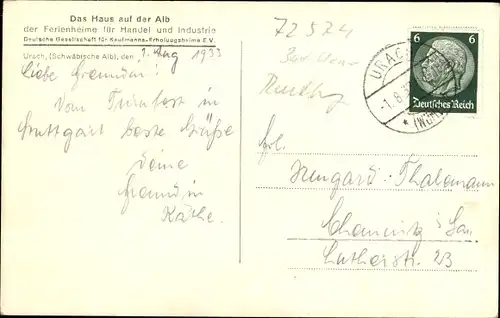 Das Haus auf der Alb
der Ferienheime für Handel und Industrie
Deutsche Gesellschaft für Kaufmanns-Erholungsheime E.V.
Urach, (Schwäbische Alb), den 1. Aug 1933
Liebe Freundin!
Vom Turnfest in
Stuttgart beste Grüße
Deine
Freundin
Käthe.
72574
URACH
-1.8.33
(WÜRTT)
6 6
Deutsches Reich
Frl.
Irmgard Thalemann
Chemnitz i. Sa.
Lutherstr. 23